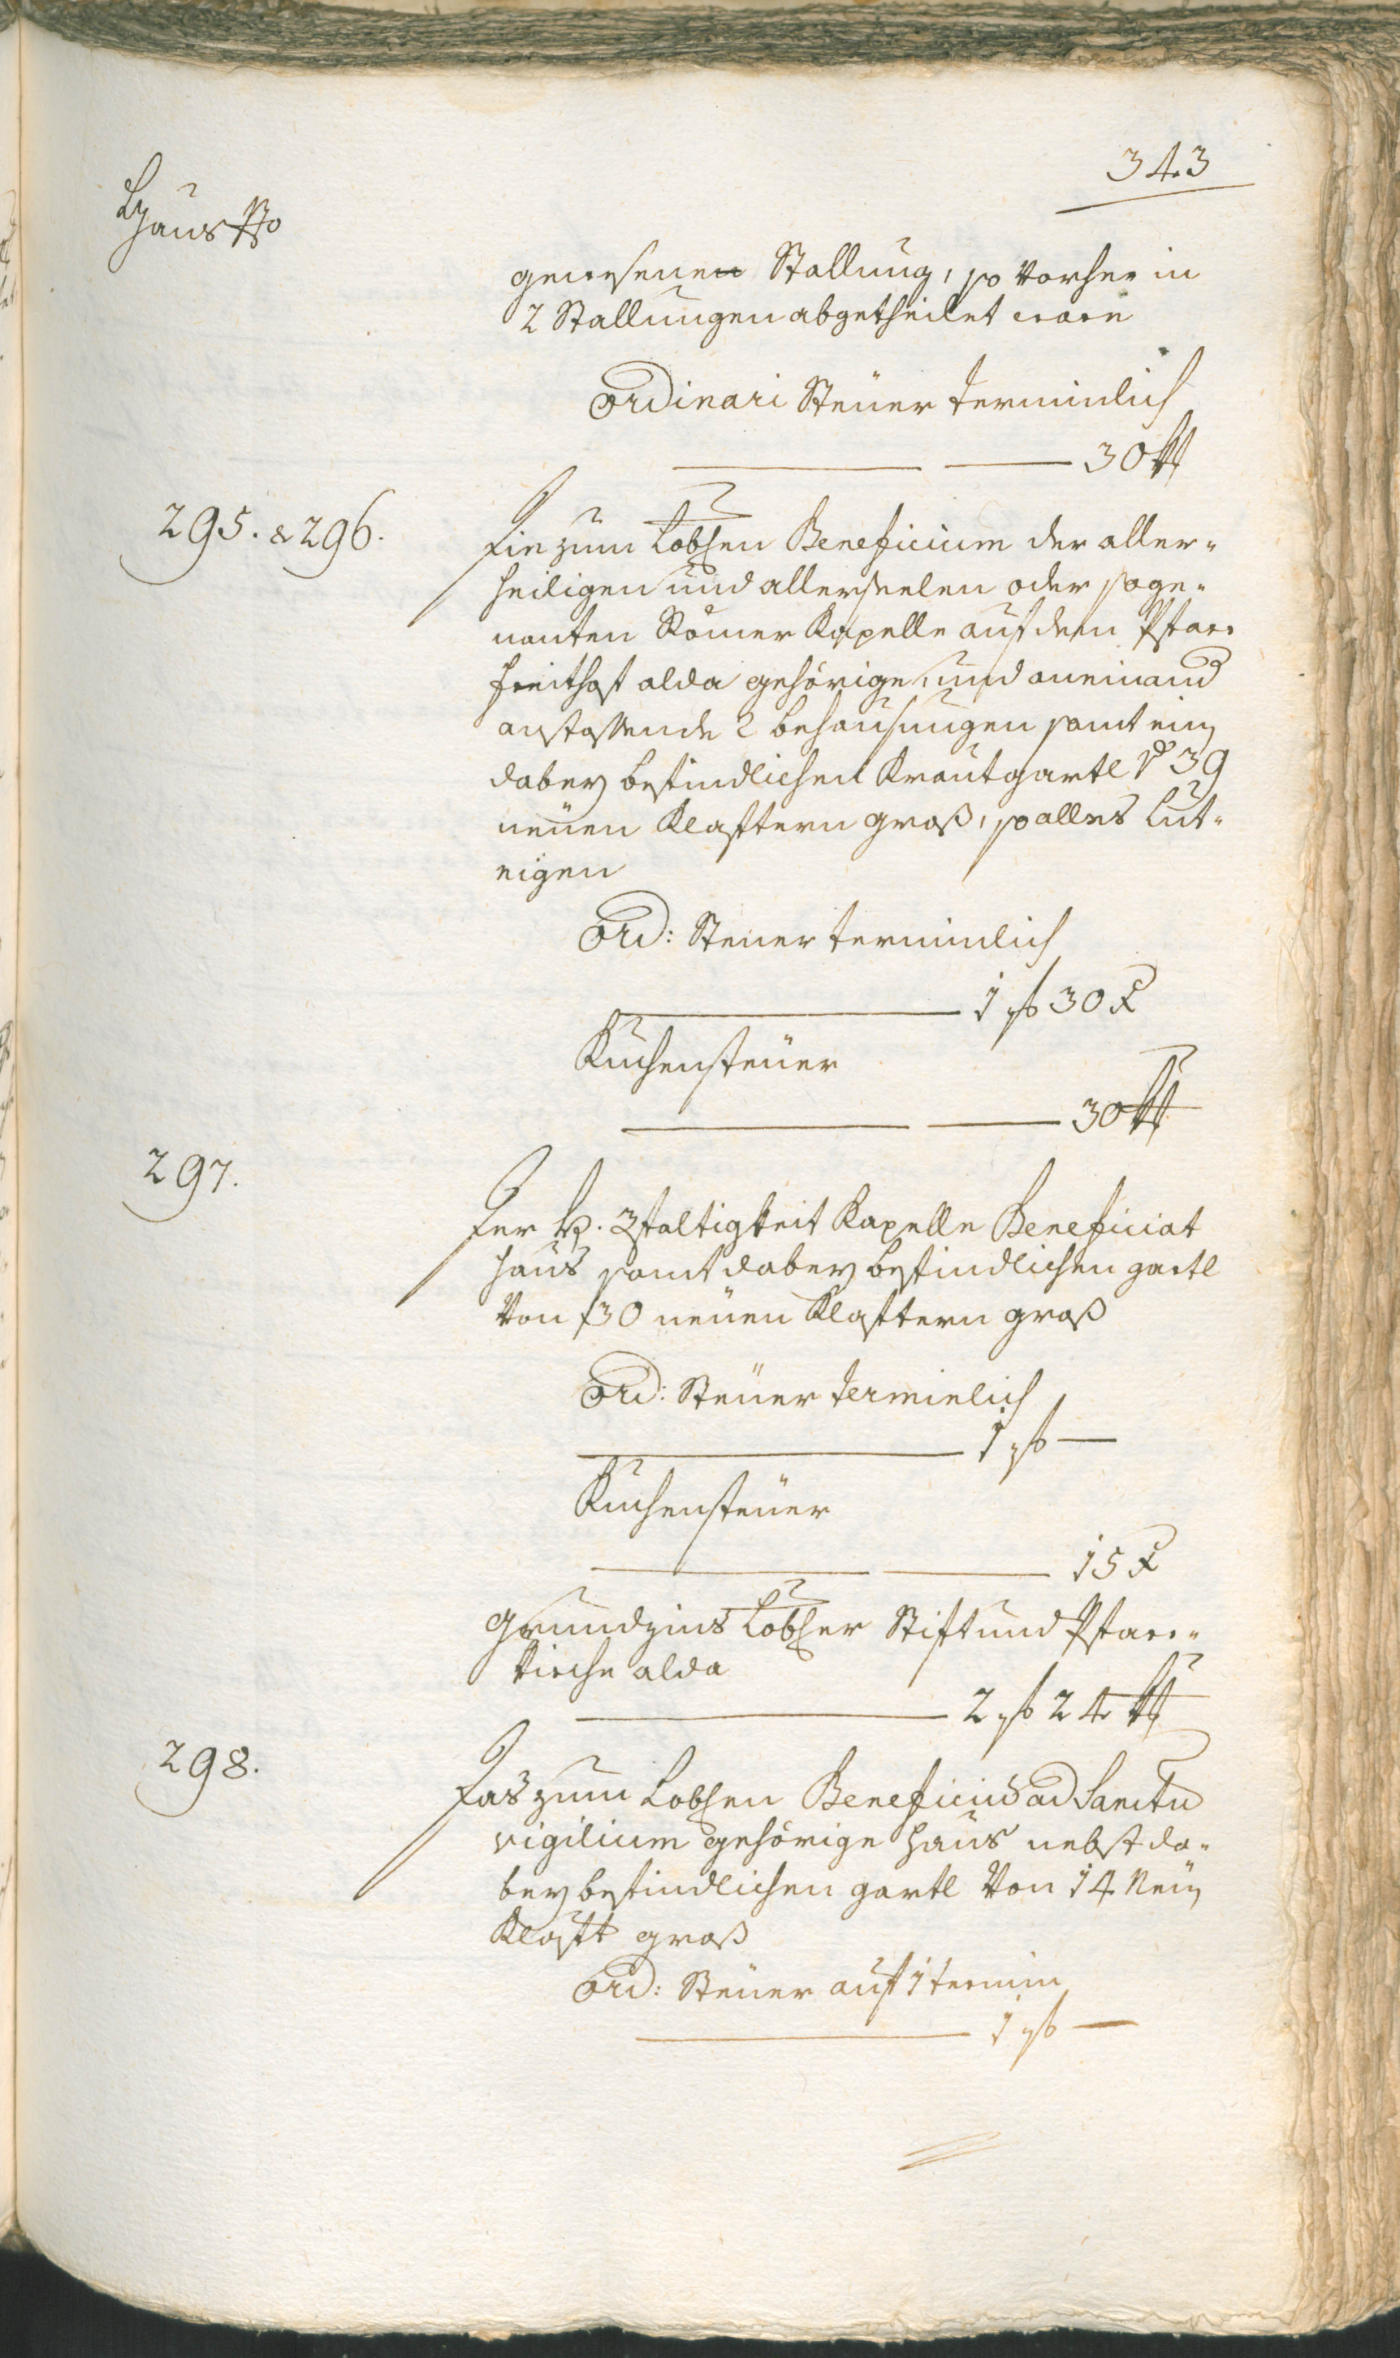 343
Haus No
gewesenen Stallung, so vorher in
2 Stallungen abgetheilet ware
Ordinari Steuer terminlich
30 kr
295. & 296. Die zum Löbl:en Beneficium der aller-
heiligen und allerseelen oder soge-
nanten Römer Kapelle auf dem Pfarr
freithof alda gehörige, und aneinand
anstossende 2 behausungen samt ein
dabey befindlichen Krautgartl pr 39
neuen Klaftern groß, so alles Lut-
eigen
Ord: Steuer terminlich
1 f 30 x
Kuchensteuer
30 kr
297. Der H. 3faltigkeit Kapelle Beneficiat
haus samt dabey befindlichen gartl
Von 30 neuen Klaftern groß
Ord: Steuer terminlich
1 f —
Kuchensteuer
15 x
Grundzins Löbl:er Stift und Pfarr-
kirche alda
2 f 24 kr
298. Das zum Löbl:en Beneficio ad Sanctu
vigilium gehörige haus nebst da-
bey befindlichen gartl Von 14 Neuen
Klaft groß
Ord: Steuer auf 1 termin
1 f —